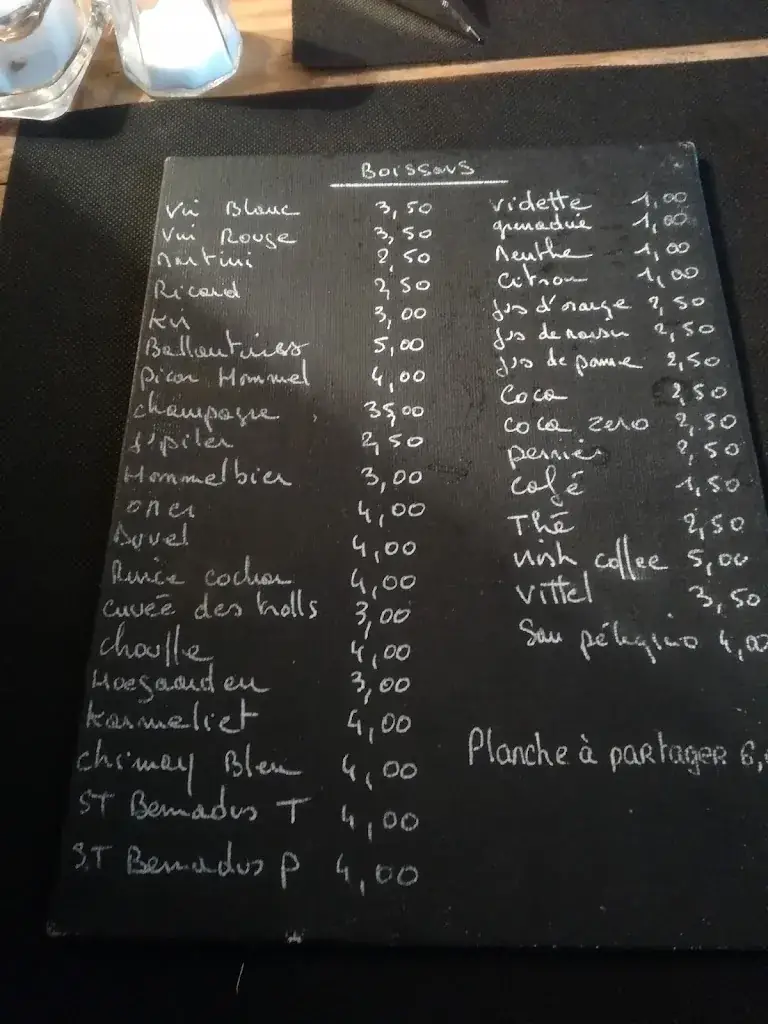 Boissons
Vin Blanc 3,50
Vin Rouge 3,50
Martini 2,50
Ricard 2,50
Kir 3,00
Ballantines 5,00
Picon Hommel 4,00
champagne 35,00
Jupiler 2,50
Hommelbier 3,00
Orval 4,00
Duvel 4,00
Rince cochon 4,00
cuvée des trolls 3,00
chouffe 4,00
Hoegaarden 3,00
Karmeliet 4,00
chimay Bleu 4,00
ST Bernadus T 4,00
ST Bernadus P 4,00
vidette 1,00
grenadine 1,00
Menthe 1,00
Citron 1,00
jus d'orange 2,50
jus de raisin 2,50
jus de pomme 2,50
Coca 2,50
coca zero 2,50
perrier 2,50
Café 1,50
Thé 2,50
irish coffee 5,00
Vittel 3,50
San péligrino 4,00
Planche à partager 6,